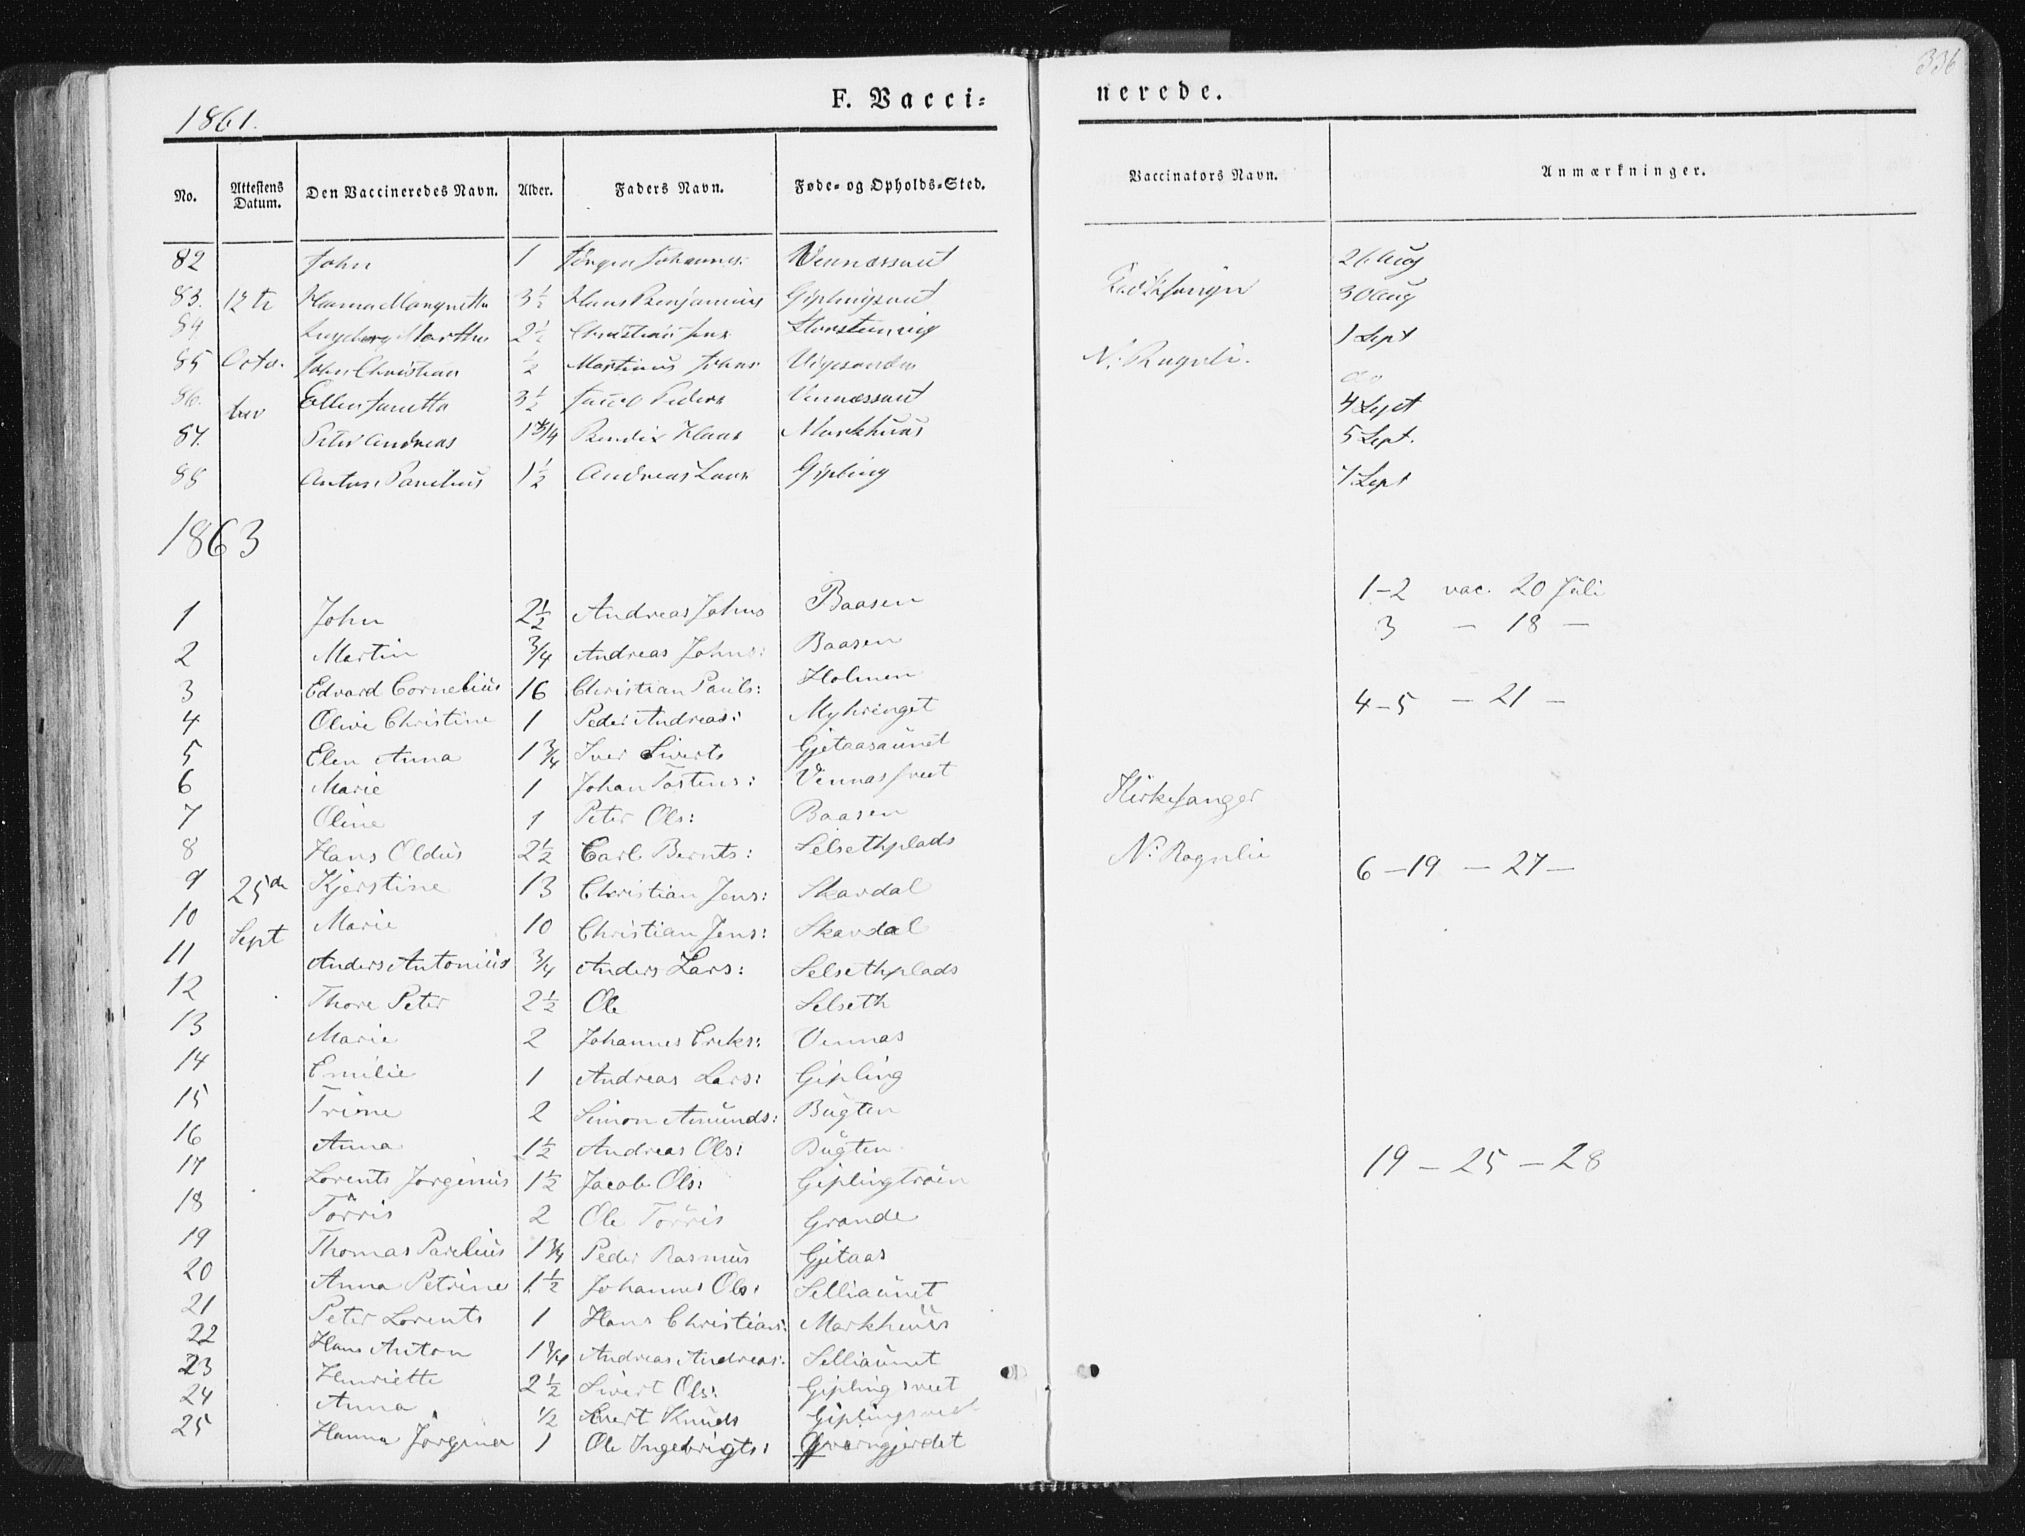 336
1861.
F. Vacci=
nerede.
No. Attestens Datum. Den Vaccineredes Navn. Alder. Faders Navn. Føde= og Opholds=Sted. Vaccinators Navn. Anmærkninger.
82 John 1 Jörgen Johannes: Vennæssvet 26 Aug
83. 12te Hanna Margretha 3½ Hans Benjamins Giplingsvet 30 Aug
84 Ingeborg Martha 2½ Christian Jens 1 Sept
85 Octo- John Christian ½ Martinus Johns N. Rognli. do
86. ber Ellen Janetta 3½ Peders Vennæssvet 4 Sept
87. Peter Andreas 1 3/4 Bendix Hans Markhuus 5 Sept.
88 Anton Parelius 1½ Andreas Lars Gipling 7 Sept
1863
1 John 2½ Andreas Johns Baasen 1-2 vac. 20 Juli
2 Martin 3/4 Andreas Johns: Baasen 3 — 18 —
3 Edvard Cornelius 16 Christian Pauls: Holmen
4 Olive Christine 1 Peder Andreas: Myhrenget 4-5 — 21 —
5 Elen Anna 1 3/4 Iver Siverts Gjetaasaunet
6 Marie 1 Johan Tostens: Vennassvet Kirkesanger
7 Oline 1 Peter Ols: Baasen
8 Hans Oldus 2½ Carl Bernts: Selsethplads N. Rognlie
9 25de Kjerstine 13 Christian Jens: Skavdal 6—19 — 27 —
10 Sept Marie 10 Christian Jens: Skavdal
11 Anders Antonius 3/4 Anders Lars: Selsethplads
12 Thore Peter 2½ Ole Selseth
13 Marie 2 Johannes Eriks: Vennas
14 Emilie 1 Andreas Lars: Gipling
15 Trine 2 Simon Amunds: Bugten
16 Anna 1½ Andreas Ols: Bugten
17 Lorents Jørginus 1½ Jacob Ols: Giplingtrøen 19 — 25 — 28
18 Törris 2 Ole Törris Grande
19 Thomas Parelius 1 3/4 Peder Rasmus Gjetaas
20 Anna Petrine 1½ Johannes Ols: Selliaunet
21 Peter Lorents 1 Hans Christians: Markhuus
22 Hans Anton 1 3/4 Andreas Andreas: Selliaunet
23 Henriette 2½ Sivert Ols: Giplingsvet
24 Anna ½ Knuds Giplingsvet
25 Hanna Jörgine 1 Ole Ingebrigts: Qverngjerdet